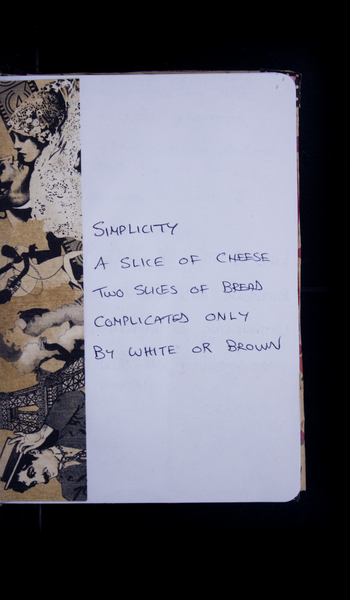 SIMPLICITY
A SLICE OF CHEESE
TWO SLICES OF BREAD
COMPLICATED ONLY
BY WHITE OR BROWN